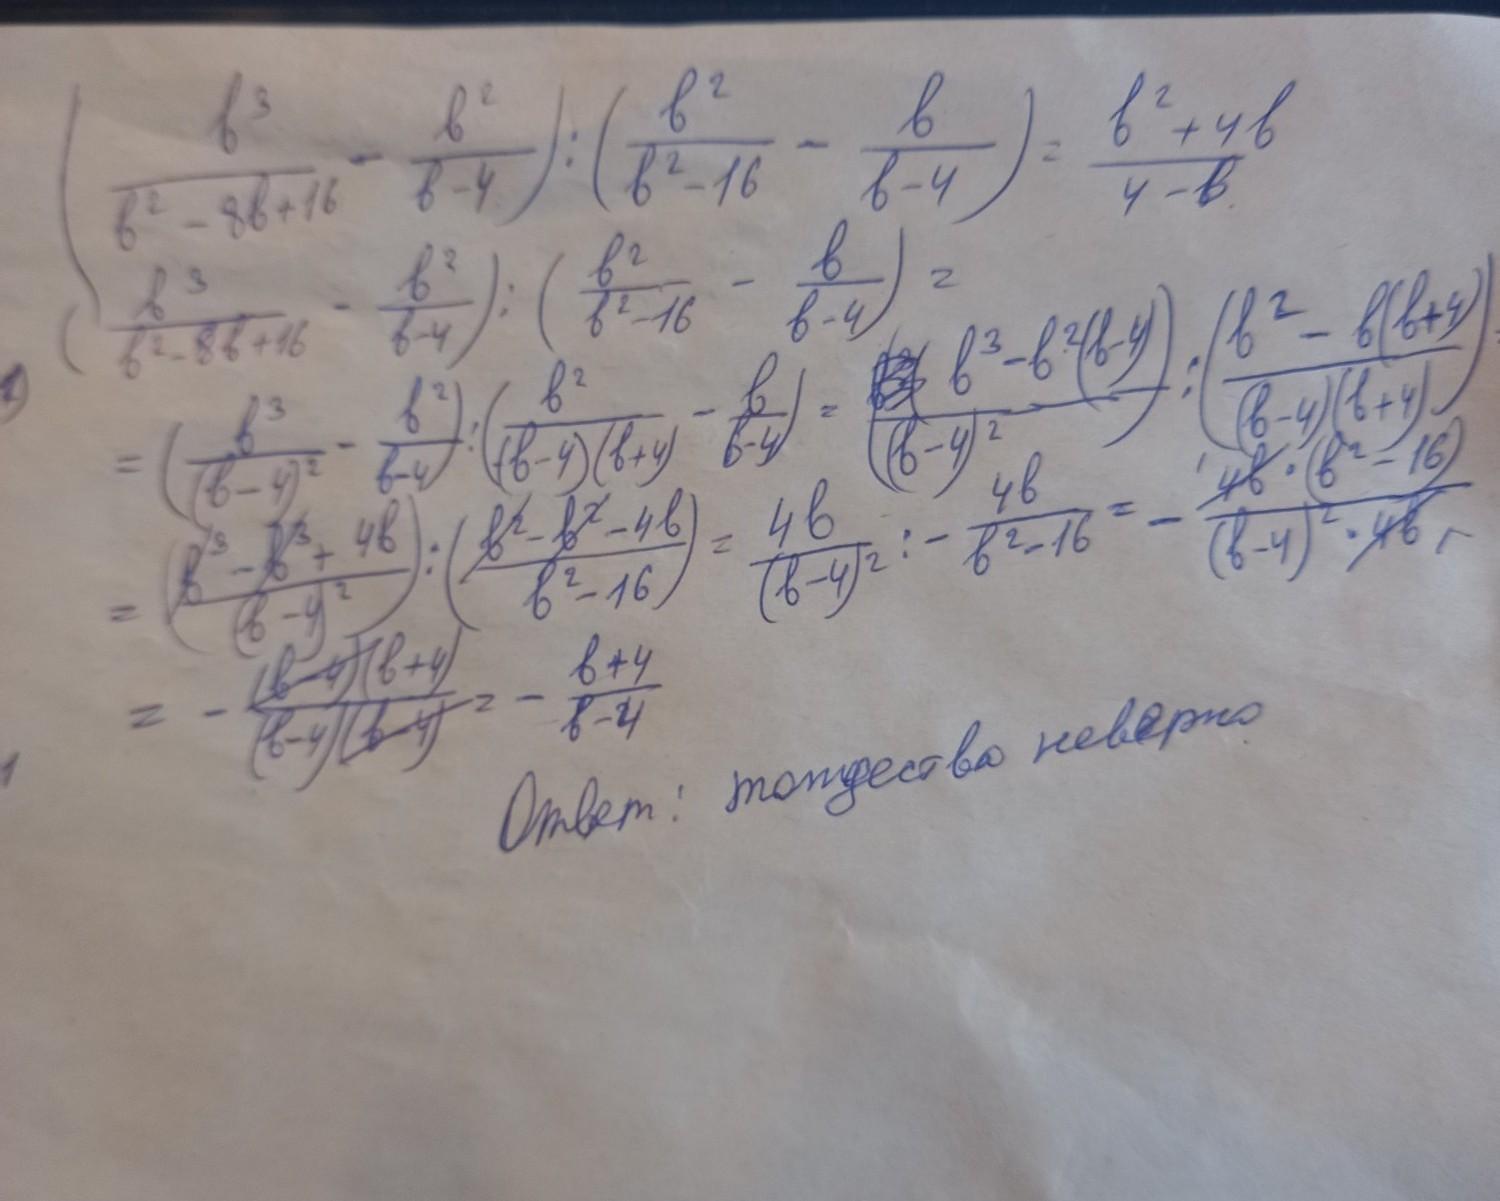 (b³/(b² - 8b + 16) - b²/(b - 4)) : (b²/(b² - 16) - b/(b - 4)) = (b² + 4b)/(4 - b)
(b³/(b² - 8b + 16) - b²/(b - 4)) : (b²/(b² - 16) - b/(b - 4)) =
= (b³/(b - 4)² - b²/(b - 4)) : (b²/((b - 4)(b + 4)) - b/(b - 4)) = ((b³ - b²(b - 4))/(b - 4)²) : ((b² - b(b + 4))/((b - 4)(b + 4))) =
= ((b³ - b³ + 4b)/(b - 4)²) : ((b² - b² - 4b)/(b² - 16)) = 4b/(b - 4)² : - 4b/(b² - 16) = - (4b · (b² - 16))/((b - 4)² · 4b) =
= - ((b - 4)(b + 4))/((b - 4)(b - 4)) = - (b + 4)/(b - 4)
Ответ: тождество неверно